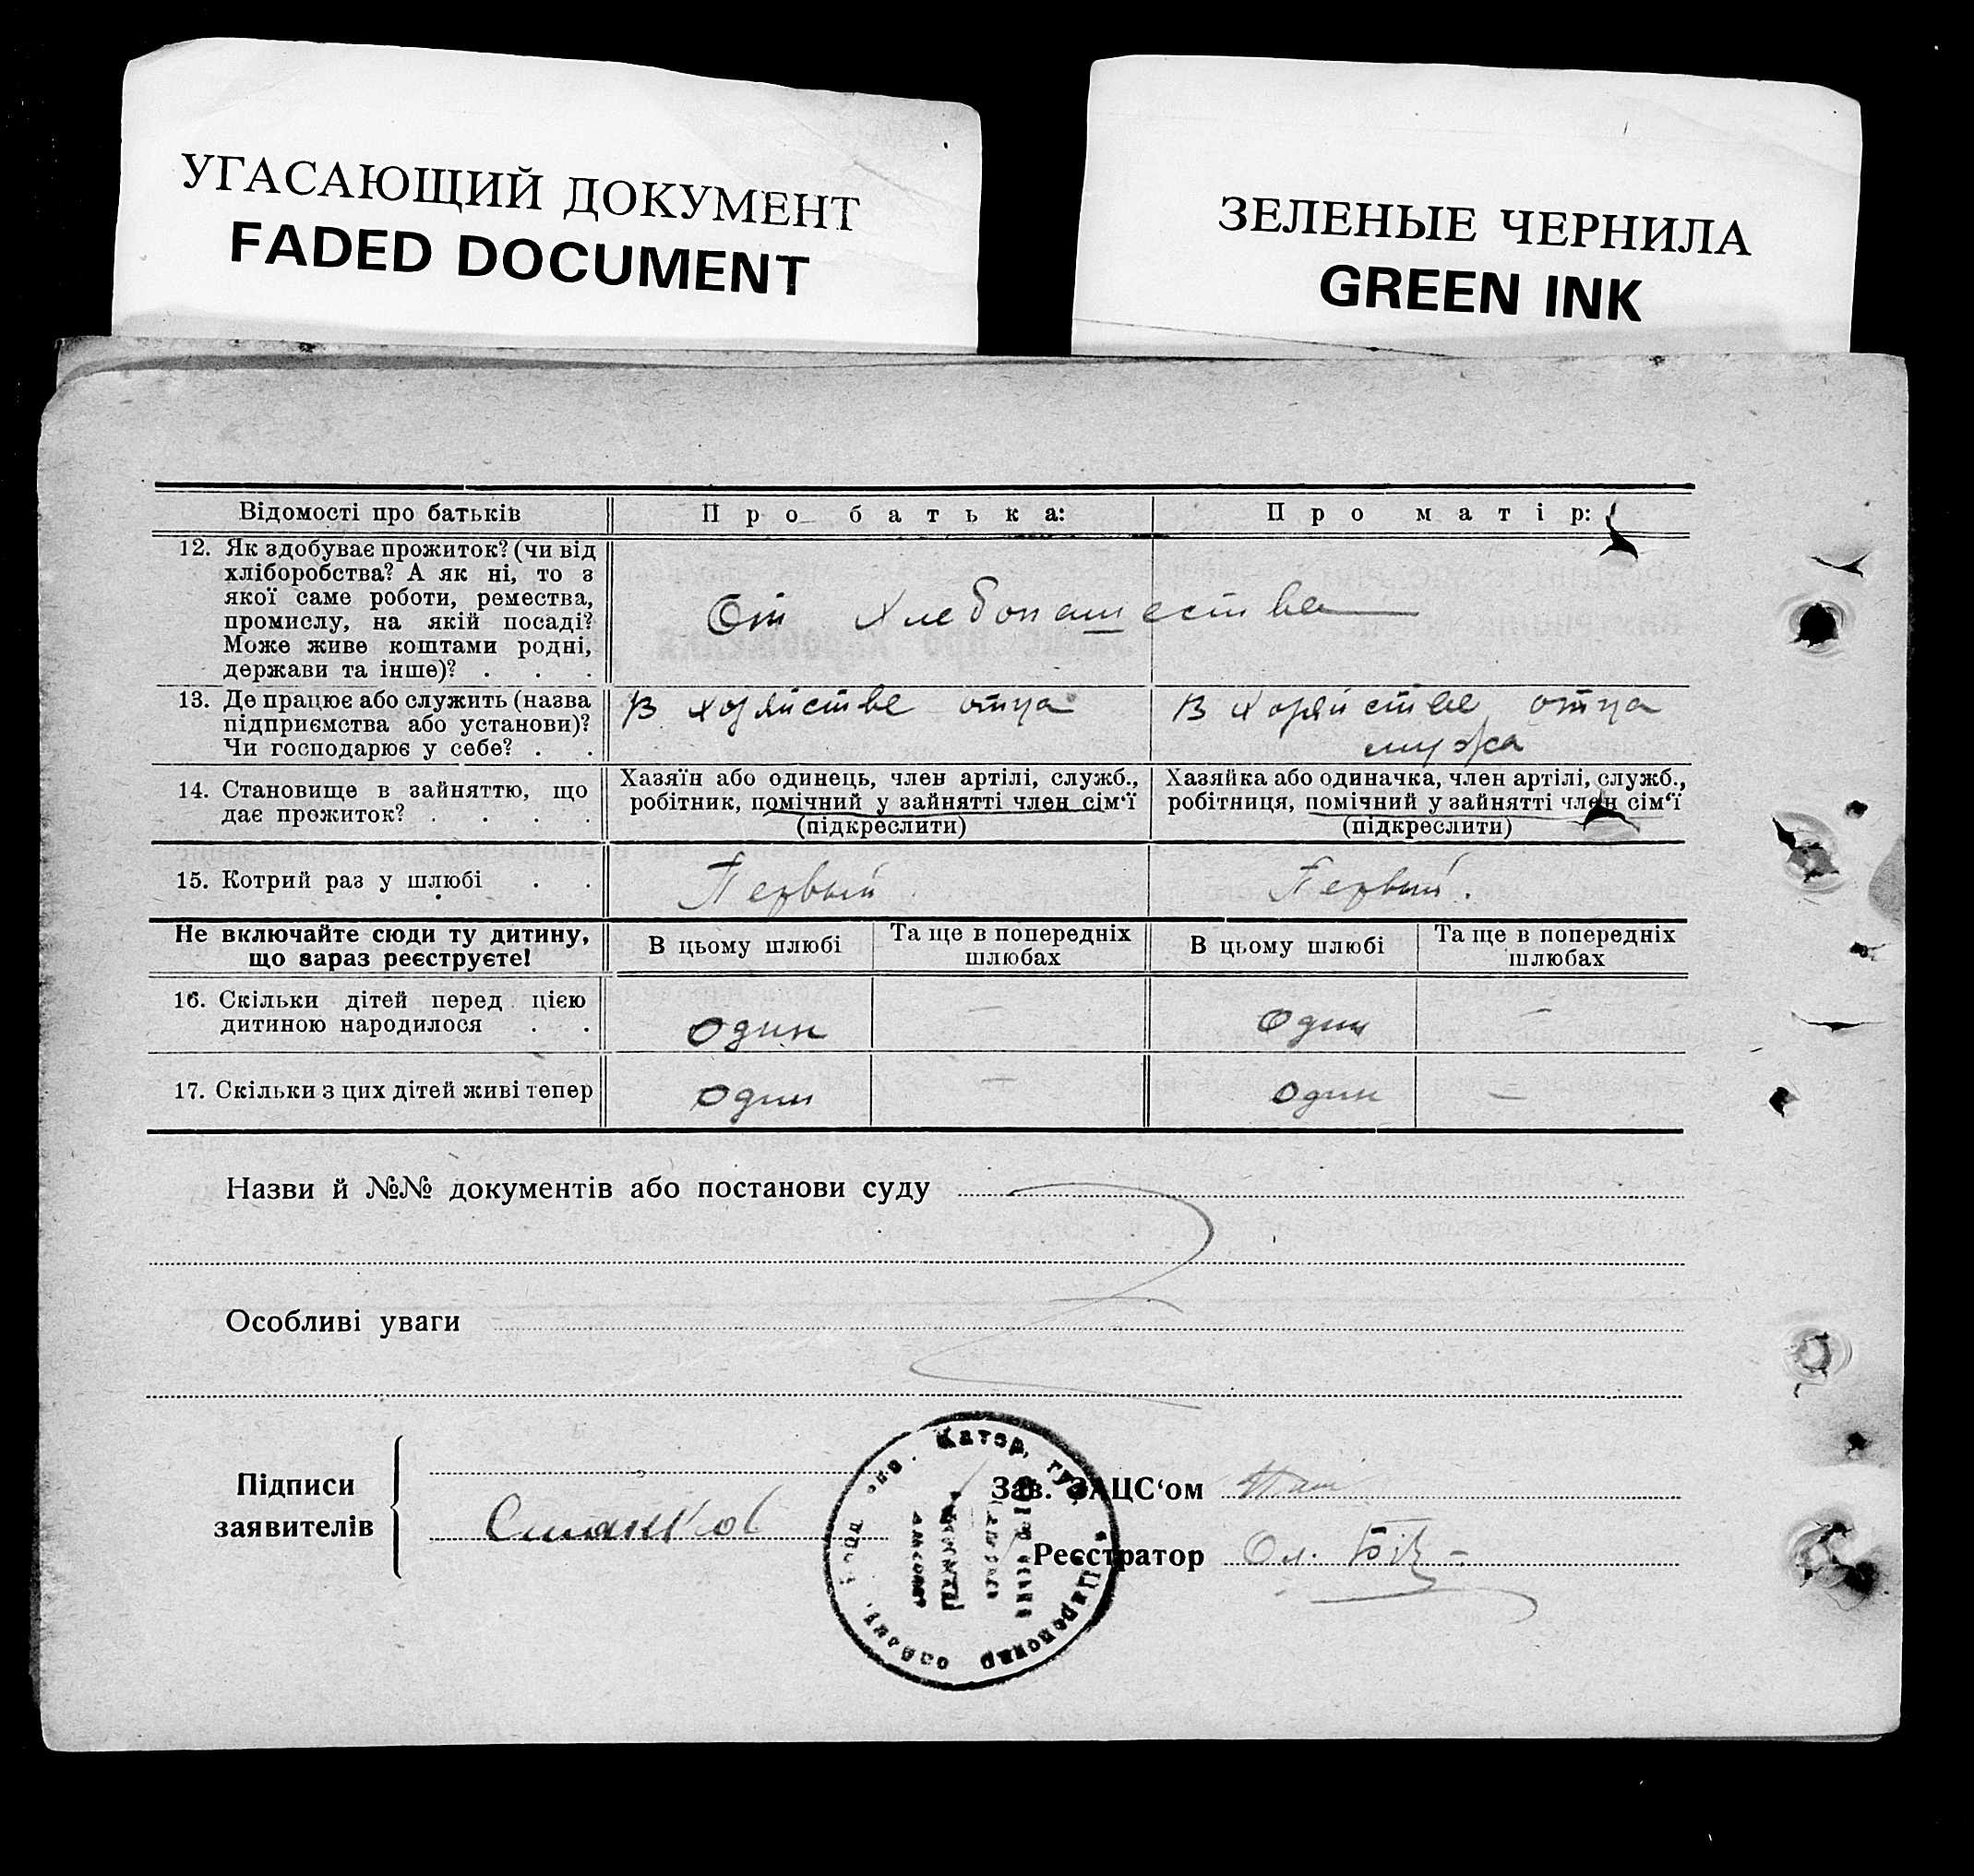 УГАСАЮЩИЙ ДОКУМЕНТ
FADED DOCUMENT
ЗЕЛЕНЫЕ ЧЕРНИЛА
GREEN INK
Відомості про батьків
Про батька:
Про матір:
12. Як здобуває прожиток? (чи від
хліборобства? А як ні, то з
якої саме роботи, ремества,
промислу, на якій посаді?
Може живе коштами родні,
держави та інше)? . . .
От хлебопашества
13. Де працює або служить (назва
підприємства або установи)?
Чи господарює у себе? . .
В хозяйстве отца
В хозяйстве отца
мужа
14. Становище в зайняттю, що
дає прожиток? . . . .
Хазяїн або одинець, член артілі, служб.,
робітник, помічний у зайнятті член сім‘ї
(підкреслити)
Хазяйка або одиначка, член артілі, служб.,
робітниця, помічний у зайнятті член сім‘ї
(підкреслити)
15. Котрий раз у шлюбі . .
Первый
Первый.
Не включайте сюди ту дитину,
що зараз реєструєте!
В цьому шлюбі
Та ще в попередніх
шлюбах
В цьому шлюбі
Та ще в попередніх
шлюбах
16. Скільки дітей перед цією
дитиною народилося . .
один
—
один
—
17. Скільки з цих дітей живі тепер
один
—
один
—
Назви й №№ документів або постанови суду
Особливі уваги
Підписи
заявителів
Станков
Катер. губ.
Зав. ЗАЦС‘ом
Реєстратор